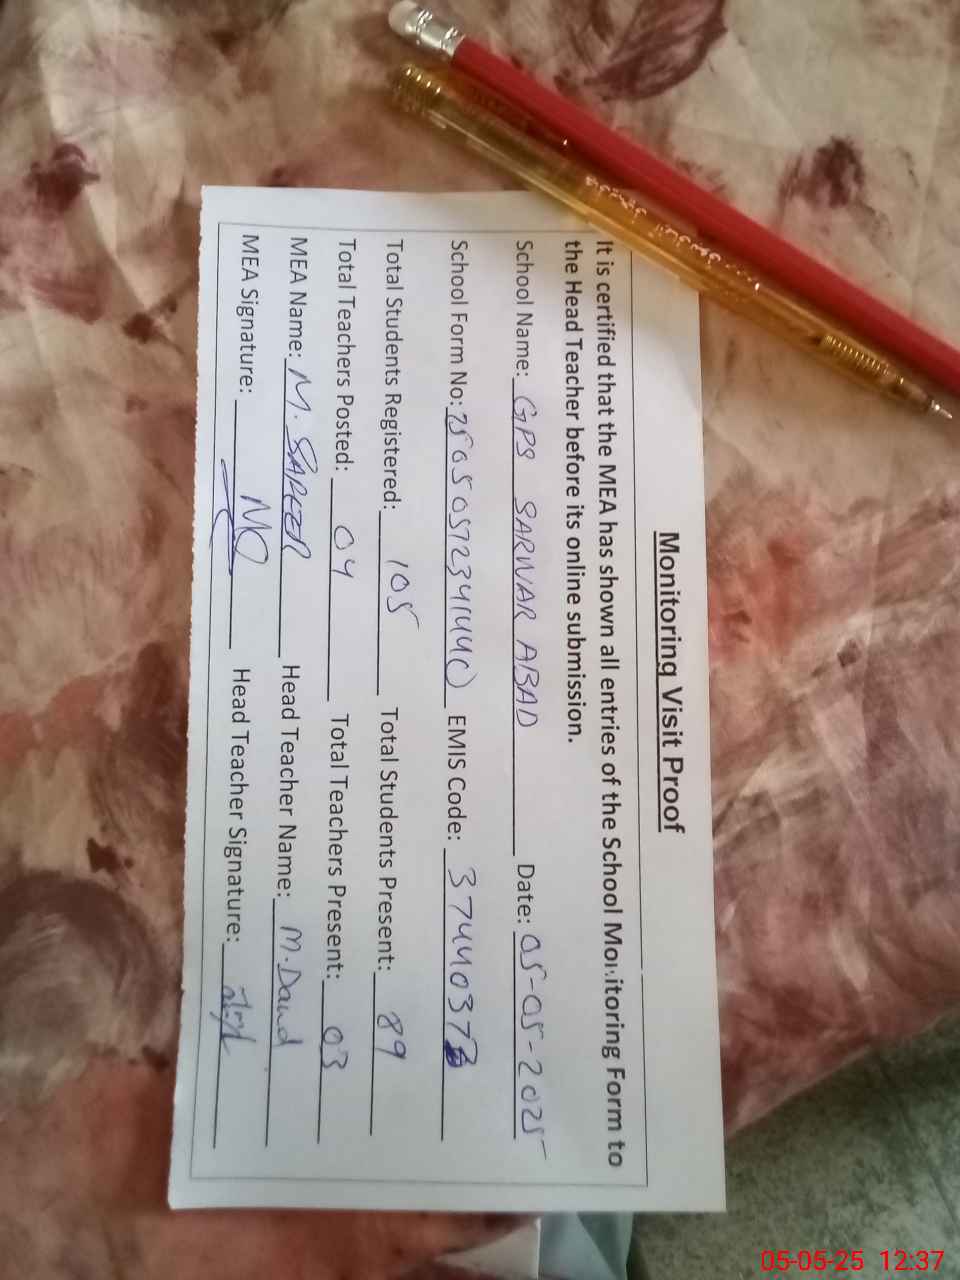 Monitoring Visit Proof
It is certified that the MEA has shown all entries of the School Monitoring Form to
the Head Teacher before its online submission.
School Name: GPS SARWAR ABAD Date: 05-05-2025
School Form No: EMIS Code:
Total Students Registered: 105 Total Students Present: 89
Total Teachers Posted: 04 Total Teachers Present: 03
MEA Name: M. Head Teacher Name: M. Daud
MEA Signature: Head Teacher Signature:
05-05-25 12:37